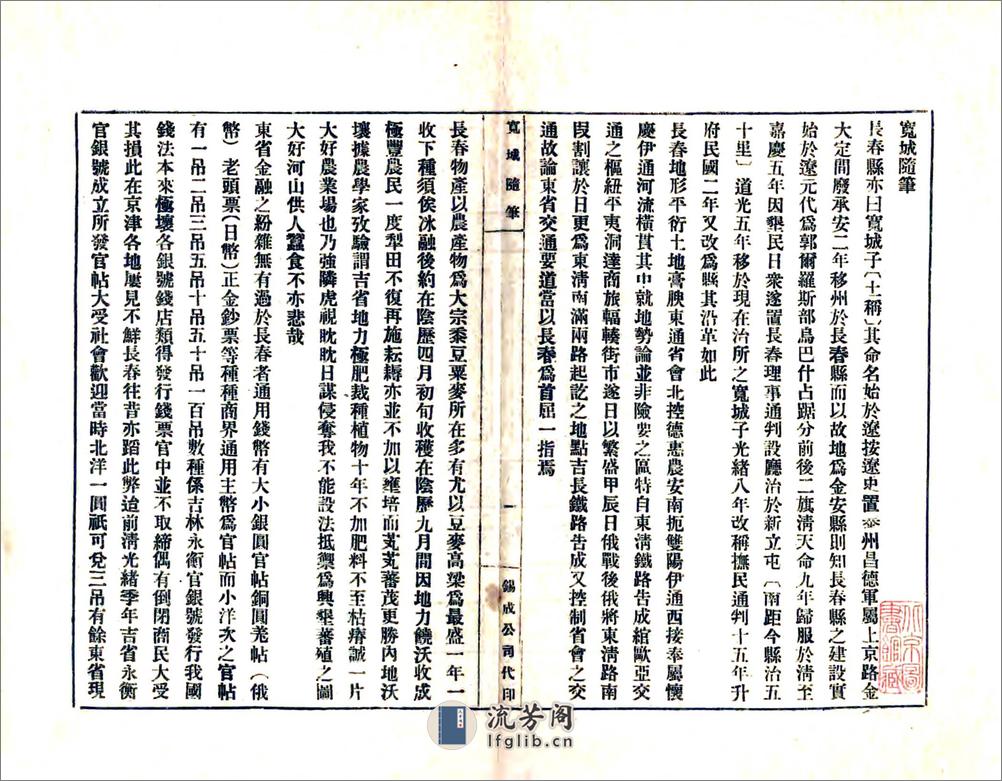 寬城隨筆
長春縣亦曰寬城子〔土稱〕其命名始於遼按遼史置泰州昌德軍屬上京路金
大定間廢承安二年移州於長春縣而以故地爲金安縣則知長春縣之建設實
始於遼元代爲郭爾羅斯部烏巴什占踞分前後二旗淸天命九年歸服於淸至
嘉慶五年因墾民日衆遂置長春理事通判設廳治於新立屯〔南距今縣治五
十里〕道光五年移於現在治所之寬城子光緒八年改稱撫民通判十五年升
府民國二年又改爲縣其沿革如此
長春地形平衍土地膏腴東通省會北控德惠農安南扼雙陽伊通西接奉屬懷
慶伊通河流橫貫其中就地勢論並非險要之區特自東淸鐵路吿成綰歐亞交
通之樞紐平夷洞達商旅輻輳街市遂日以繁盛甲辰日俄戰後俄將東淸路南
段割讓於日更爲東淸南滿兩路起訖之地點吉長鐵路吿成又控制省會之交
通故論東省交通要道當以長春爲首屈一指焉
寬城隨筆
一
錫成公司代印
長春物產以農產物爲大宗黍豆粟麥所在多有尤以豆麥高粱爲最盛一年一
收下種須俟冰融後約在陰歷四月初旬收穫在陰歷九月間因地力饒沃收成
極豐農民一度犁田不復再施耘耨亦並不加以壅培而芃芃蕃茂更勝內地沃
壤據農學家攷驗謂吉省地力極肥栽種植物十年不加肥料不至枯瘠誠一片
大好農業場也乃強隣虎視眈眈日謀侵奪我不能設法抵禦爲興墾蕃殖之圖
大好河山供人蠶食不亦悲哉
東省金融之紛雜無有過於長春者通用錢幣有大小銀圓官帖銅圓羌帖（俄
幣）老頭票（日幣）正金鈔票等種種商界通用主幣爲官帖而小洋次之官帖
有一吊二吊三吊五吊十吊五十吊一百吊數種係吉林永衡官銀號發行我國
錢法本來極壞各銀號錢店類得發行錢票官中並不取締偶有倒閉商民大受
其損此在京津各地屢見不鮮長春往昔亦蹈此弊迨前淸光緒季年吉省永衡
官銀號成立所發官帖大受社會歡迎當時北洋一圓祇可兌三吊有餘東省現
流芳阁
lfglib.cn